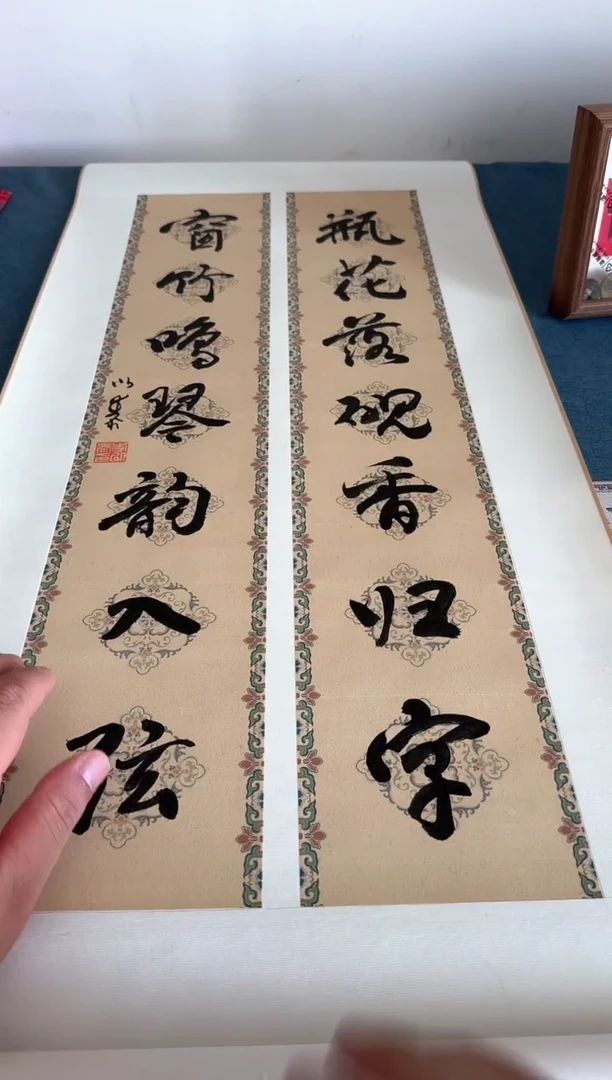 瓶花落砚香归字
窗竹鸣琴韵入弦